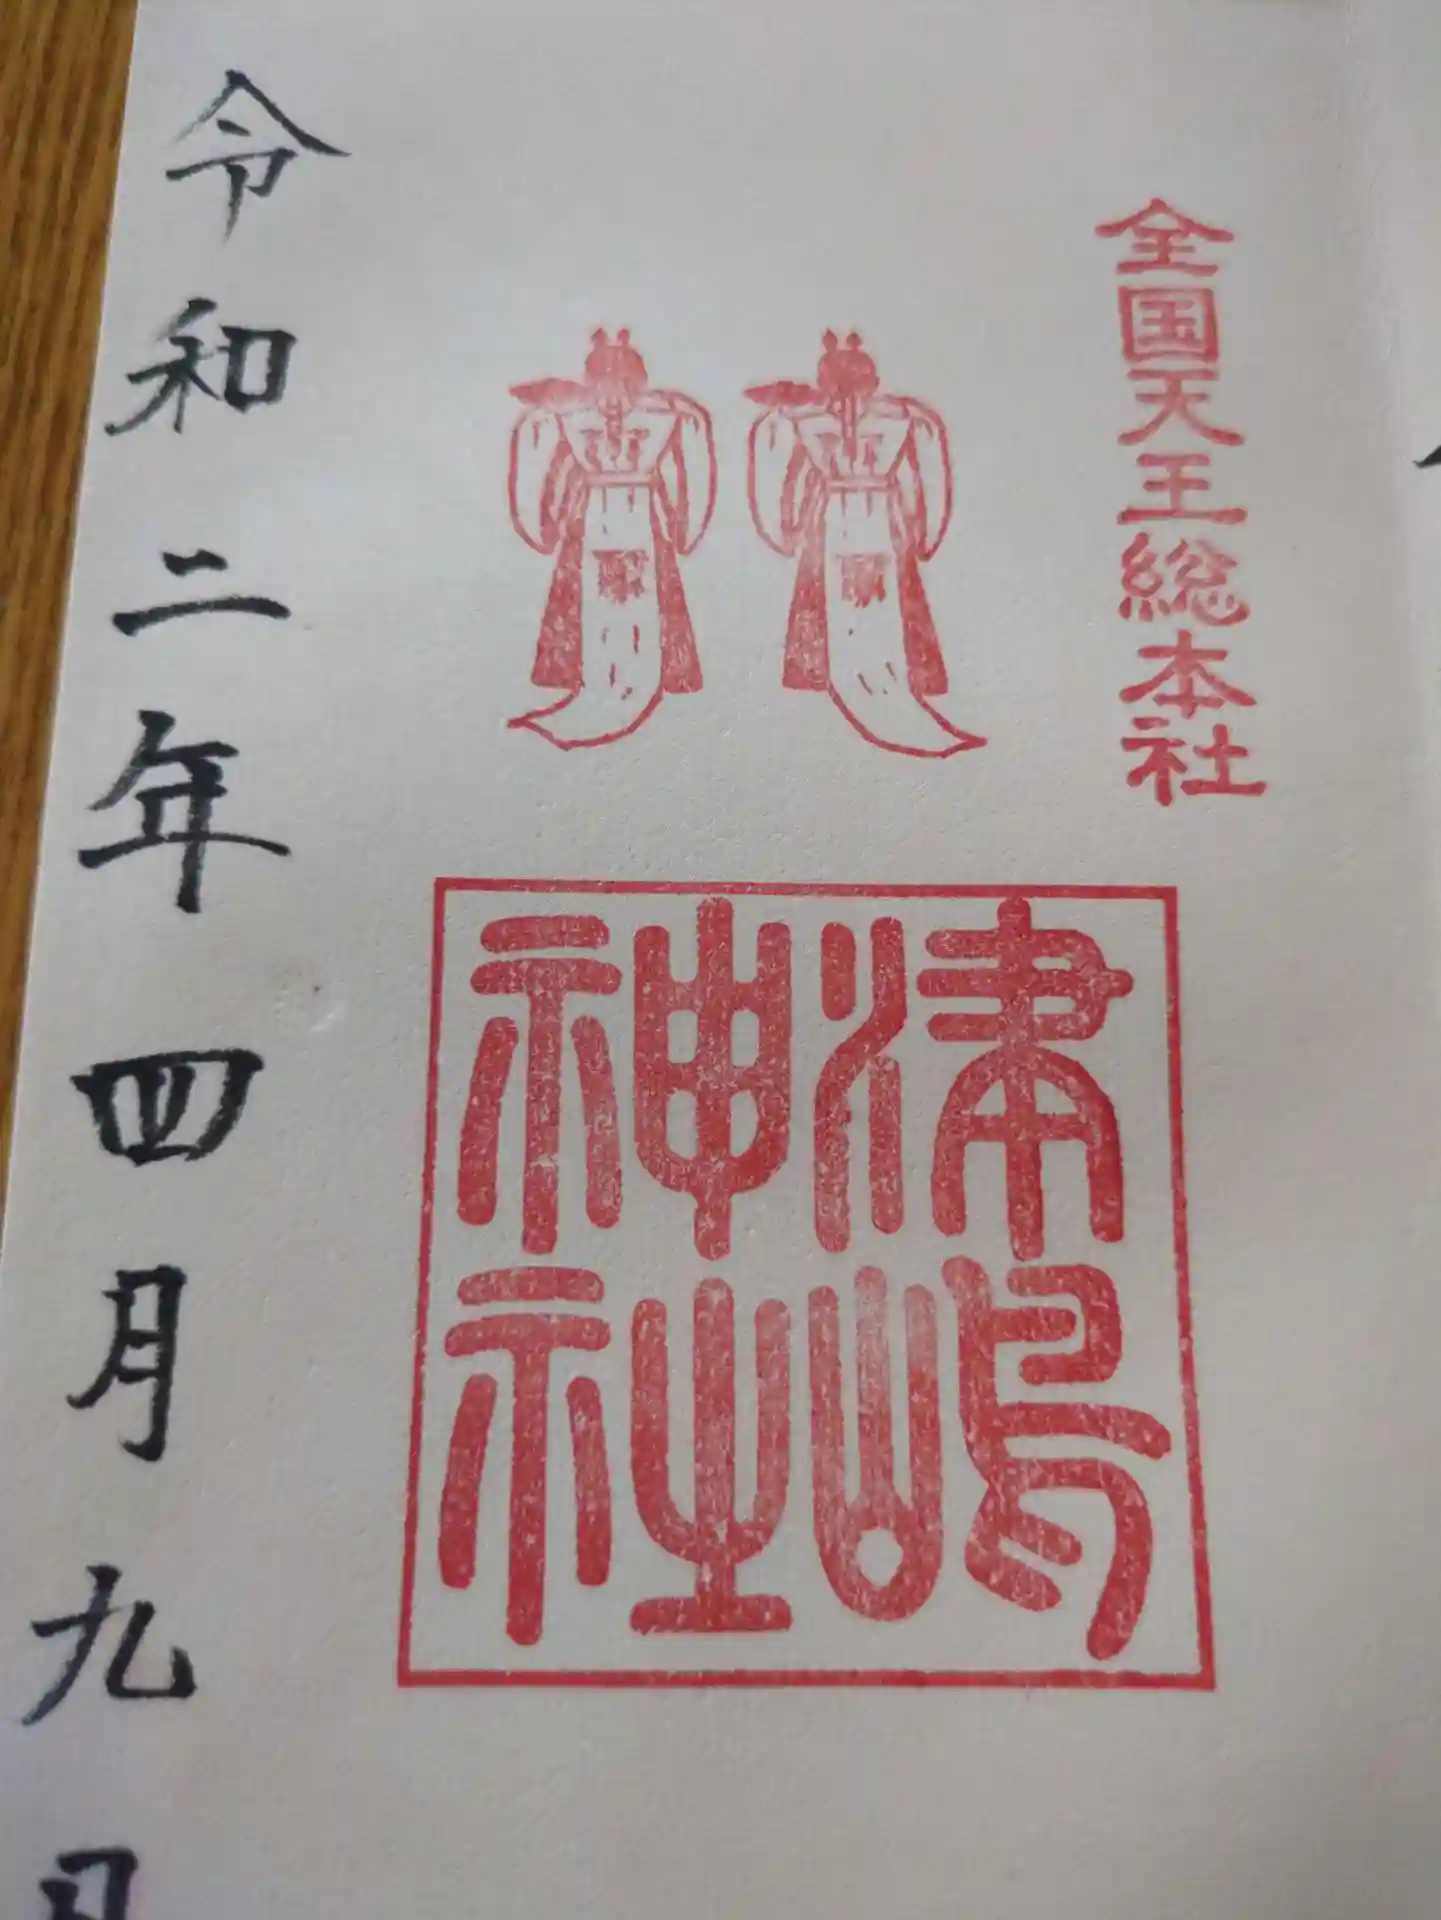 全国天王総本社
津嶋
神社
令和二年四月九日